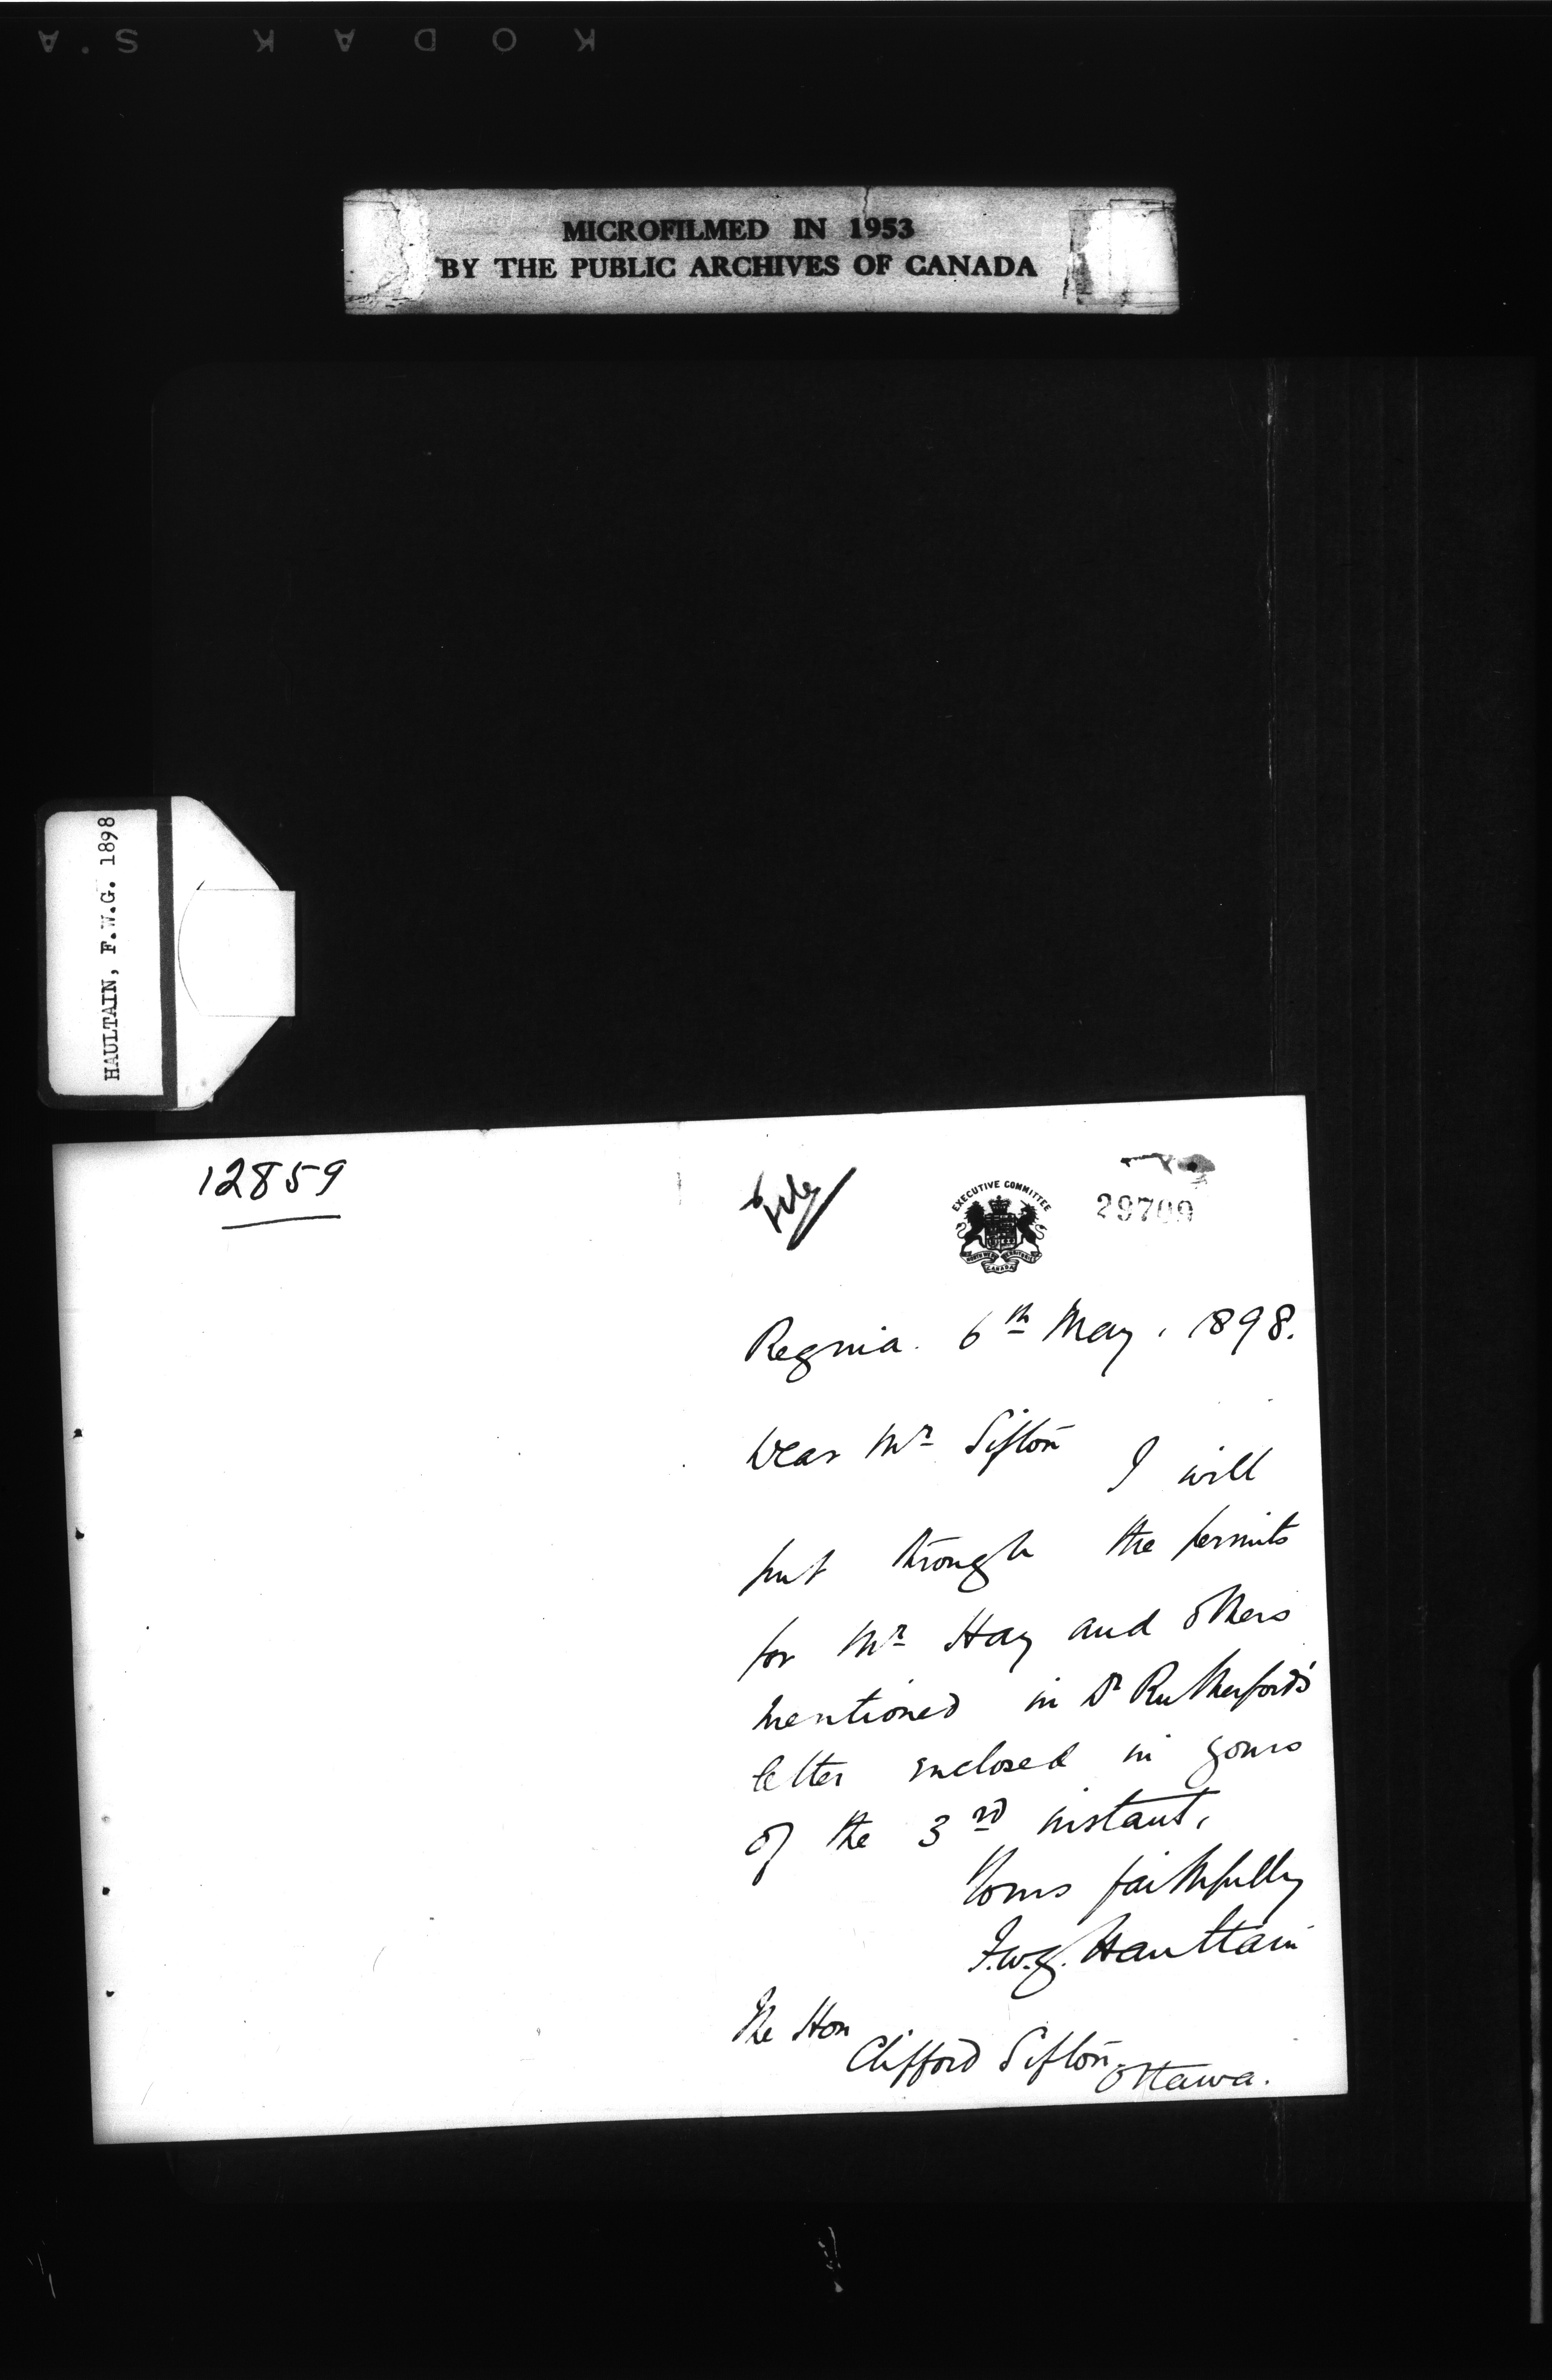 KODAK S.A
MICROFILMED IN 1953
BY THE PUBLIC ARCHIVES OF CANADA
HAULTAIN, F.W.G. 1898
12859
EXECUTIVE COMMITTEE
NORTH WEST TERRITORIES
CANADA
29709
Regina. 6th May, 1898.
Dear Mr Sifton
I will
put through the permits
for Mr Hay and others
mentioned in Dr Rutherford's
letter enclosed in yours
of the 3rd instant.
Yours faithfully
F.W.G. Haultain
The Hon
Clifford Sifton
Ottawa.